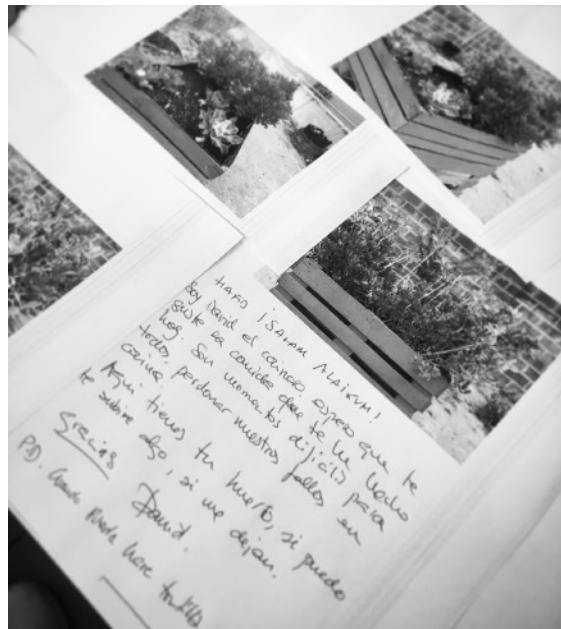 HARD ¡SALAM ALAIKUM!
Soy David el cocinero, espero que te
guste la comida que te he hecho
hoy. Son momentos dificiles para
todos, perdonar nuestros fallos en
cocina.
Aqui tienes tu huerto, si puedo
te subire algo, si me dejan.
Gracias
David.
PD. Cuando pueda hare tortilla